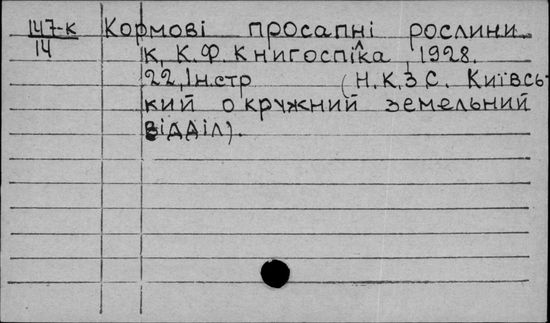 147-к Кормові просапні рослини
14 К, К.Ф. Книгоспілка, 1928.
22, Ін.стр (Н.К.З С. Київсь-
кий окружний земельний
відділ).